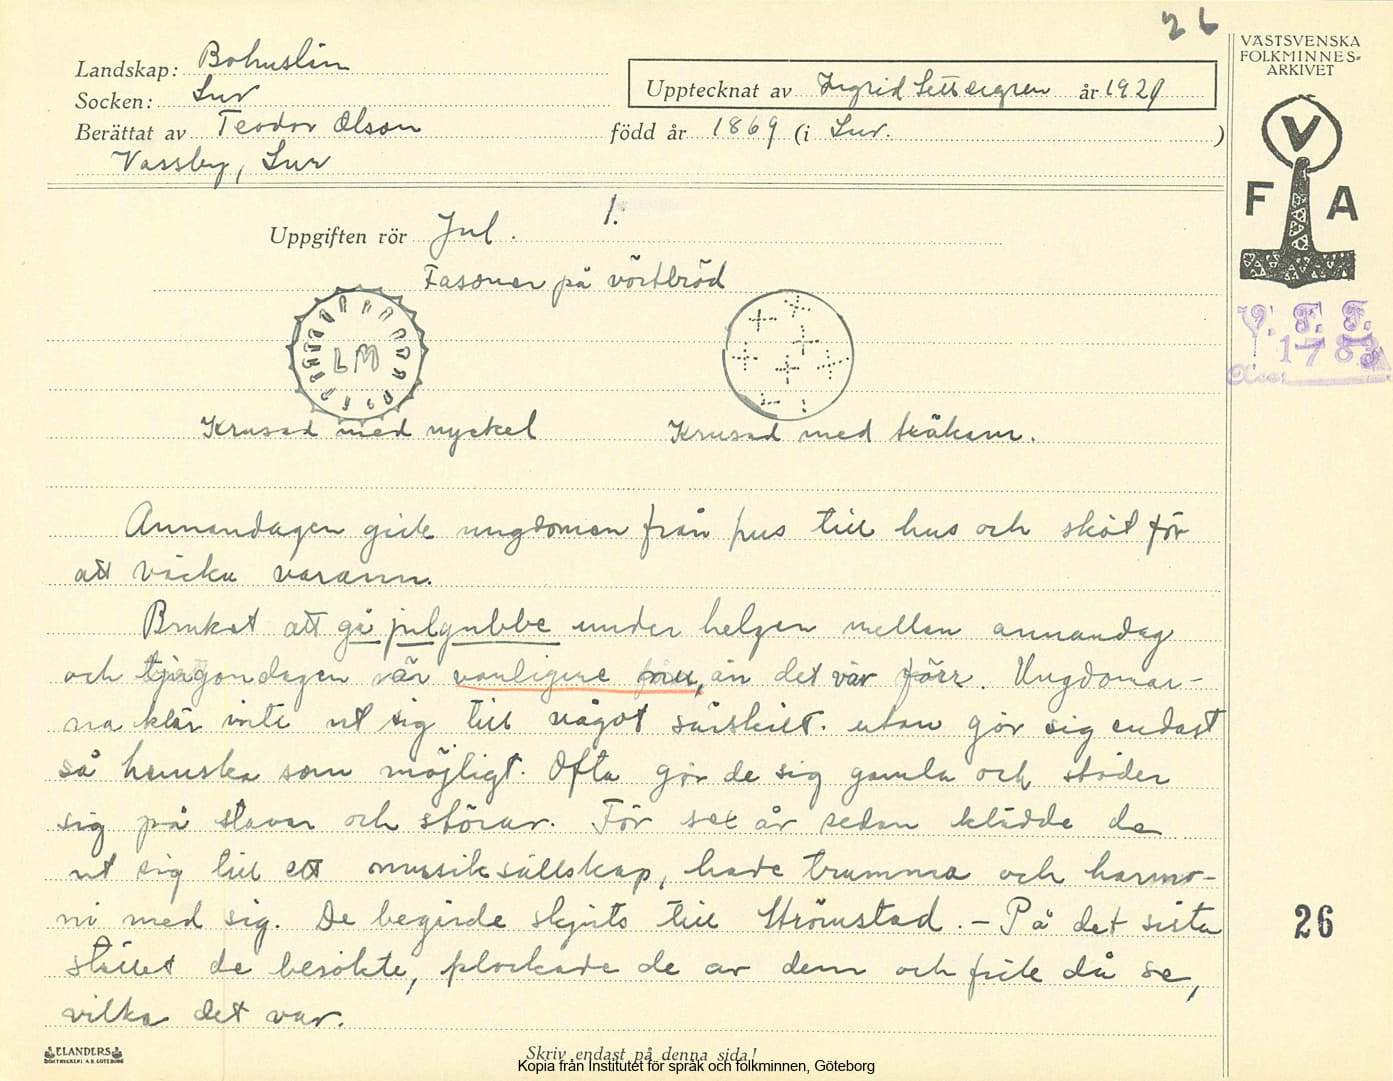 26
Landskap: Bohuslän
Socken: Lur
Berättat av Teodor Olson
Vassby, Lur
Upptecknat av Ingrid Settergren år 1929
född år 1869 (i Lur. )
VÄSTSVENSKA
FOLKMINNES-
ARKIVET
V
F A
V. F. F.
1783
Acc:
Uppgiften rör Jul. 1.
Fasoner på vörtbröd
LM
Krusad med nyckel
Krusad med träkam.
Annandagen gick ungdomen från hus till hus och sköt för
att väcka varann.
Bruket att gå julgubbe under helgen mellan annandag
och tjugondagen är vanligare nu, än det var förr. Ungdomar-
na klär inte ut sig till något särskilt. utan gör sig endast
så hemska som möjligt. Ofta gör de sig gamla och stöder
sig på stavar och störar. För sex år sedan klädde de
ut sig till ett musiksällskap, hade trumma och harmo-
ni med sig. De begärde skjuts till Strömstad. – På det sista
stället de besökte, plockade de av dem och fick då se,
vilka det var.
26
ELANDERS
BOKTRYCKERI A.B. GÖTEBORG
Skriv endast på denna sida!
Kopia från Institutet för språk och folkminnen, Göteborg